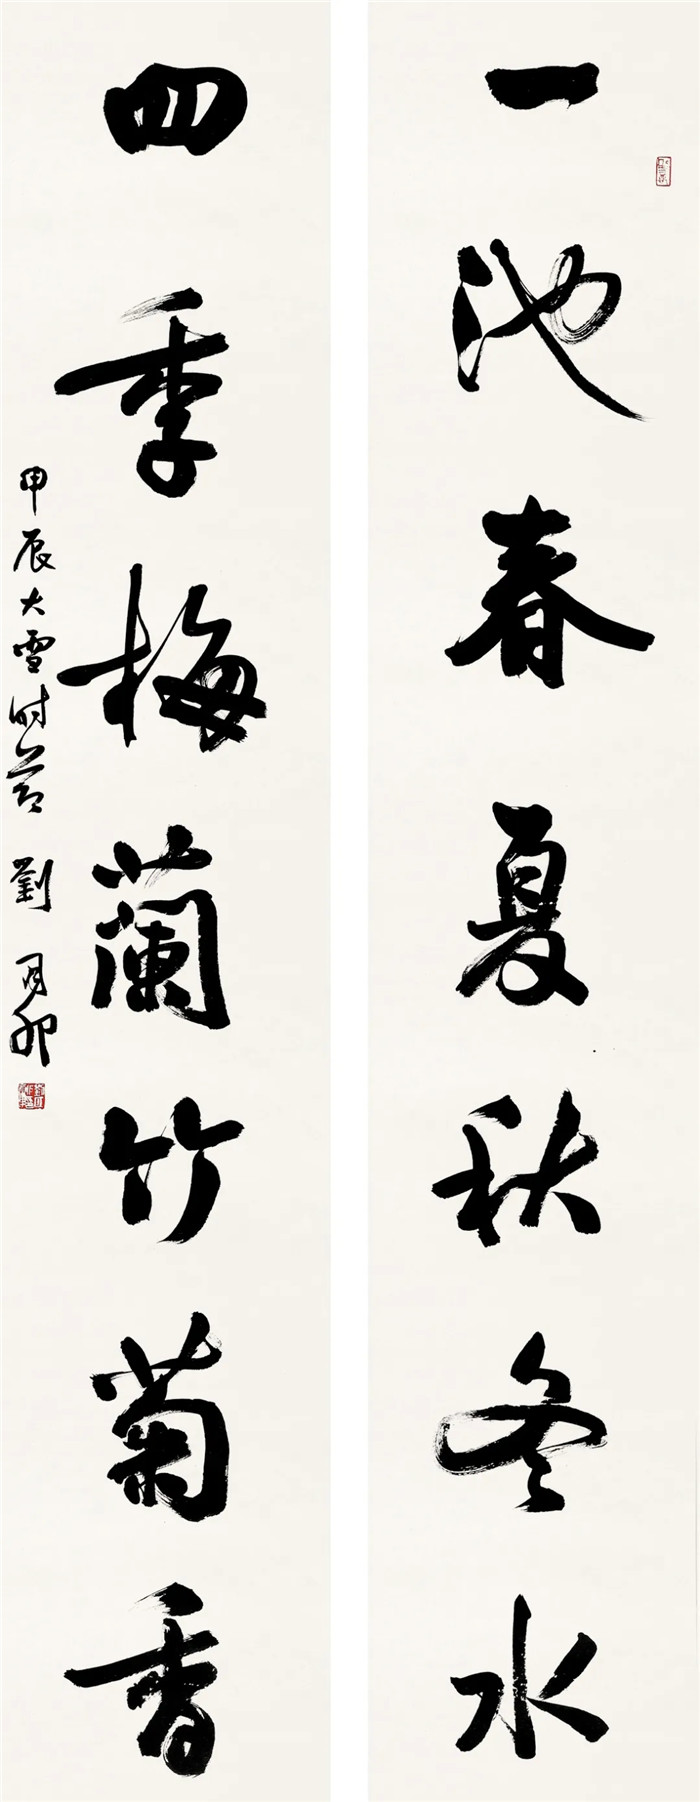 一池春夏秋冬水
四季梅蘭竹菊香
甲辰大雪時節 劉月卯